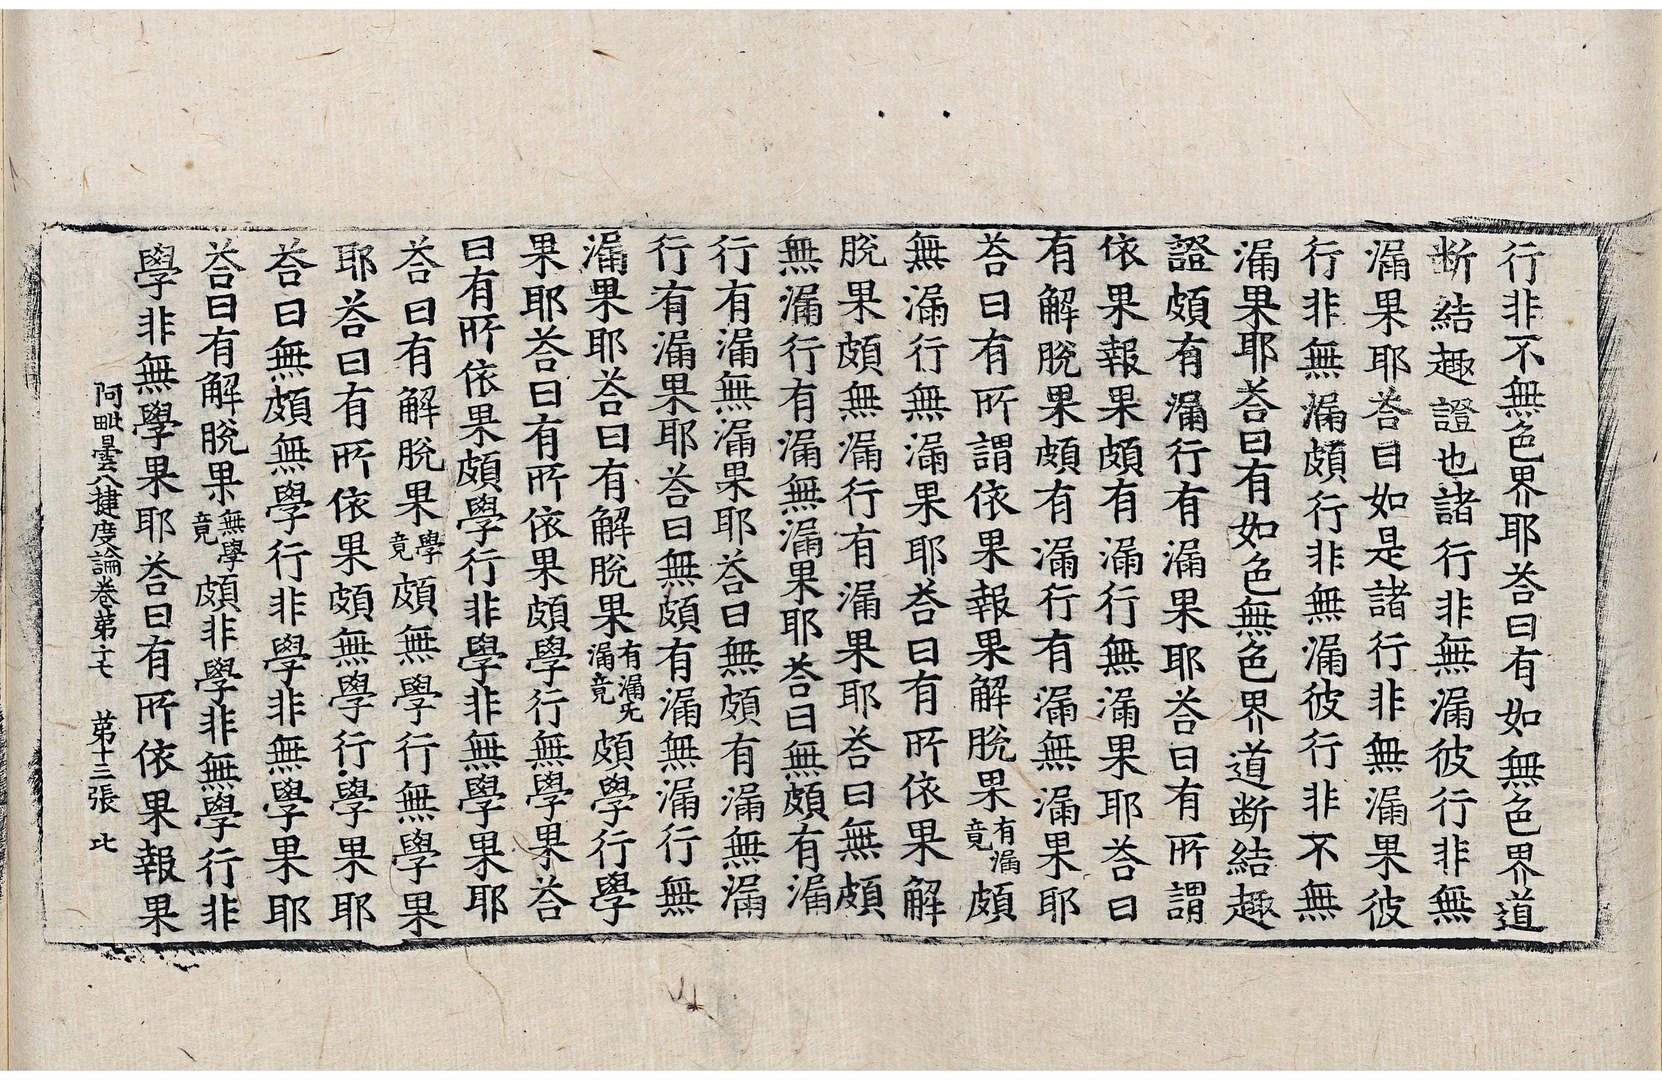 行非不無色界耶荅曰有如無色界道
断結趣證也諸行非無漏彼行非無
漏果耶荅曰如是諸行非無漏果彼
行非無漏頗行非無漏彼行非不無
漏果耶荅曰有如色無色界道断結趣
證頗有漏行有漏果耶荅曰有所謂
依果報果頗有漏行無漏果耶荅曰
有解脫果頗有漏行有漏無漏果耶
荅曰有所謂依果報果解脫果有漏竟頗
無漏行無漏果耶荅曰有所依果解
脫果頗無漏行有漏果耶荅曰無頗
無漏行有漏無漏果耶荅曰無頗有漏
行有漏無漏果耶荅曰無頗有漏無漏
行有漏果耶荅曰無頗有漏無漏行無
漏果耶荅曰有解脫果有漏无漏竟頗學行學
果耶荅曰有所依果頗學行無學果荅
曰有所依果頗學行非學非無學果耶
荅曰有解脫果學竟頗無學行無學果
耶荅曰有所依果頗無學行學果耶
荅曰無頗無學行非學非無學果耶
荅曰有解脫果無學竟頗非學非無學行非
學非無學果耶荅曰有所依果報果
阿毗曇八揵度論卷苐十七 苐十三張 比